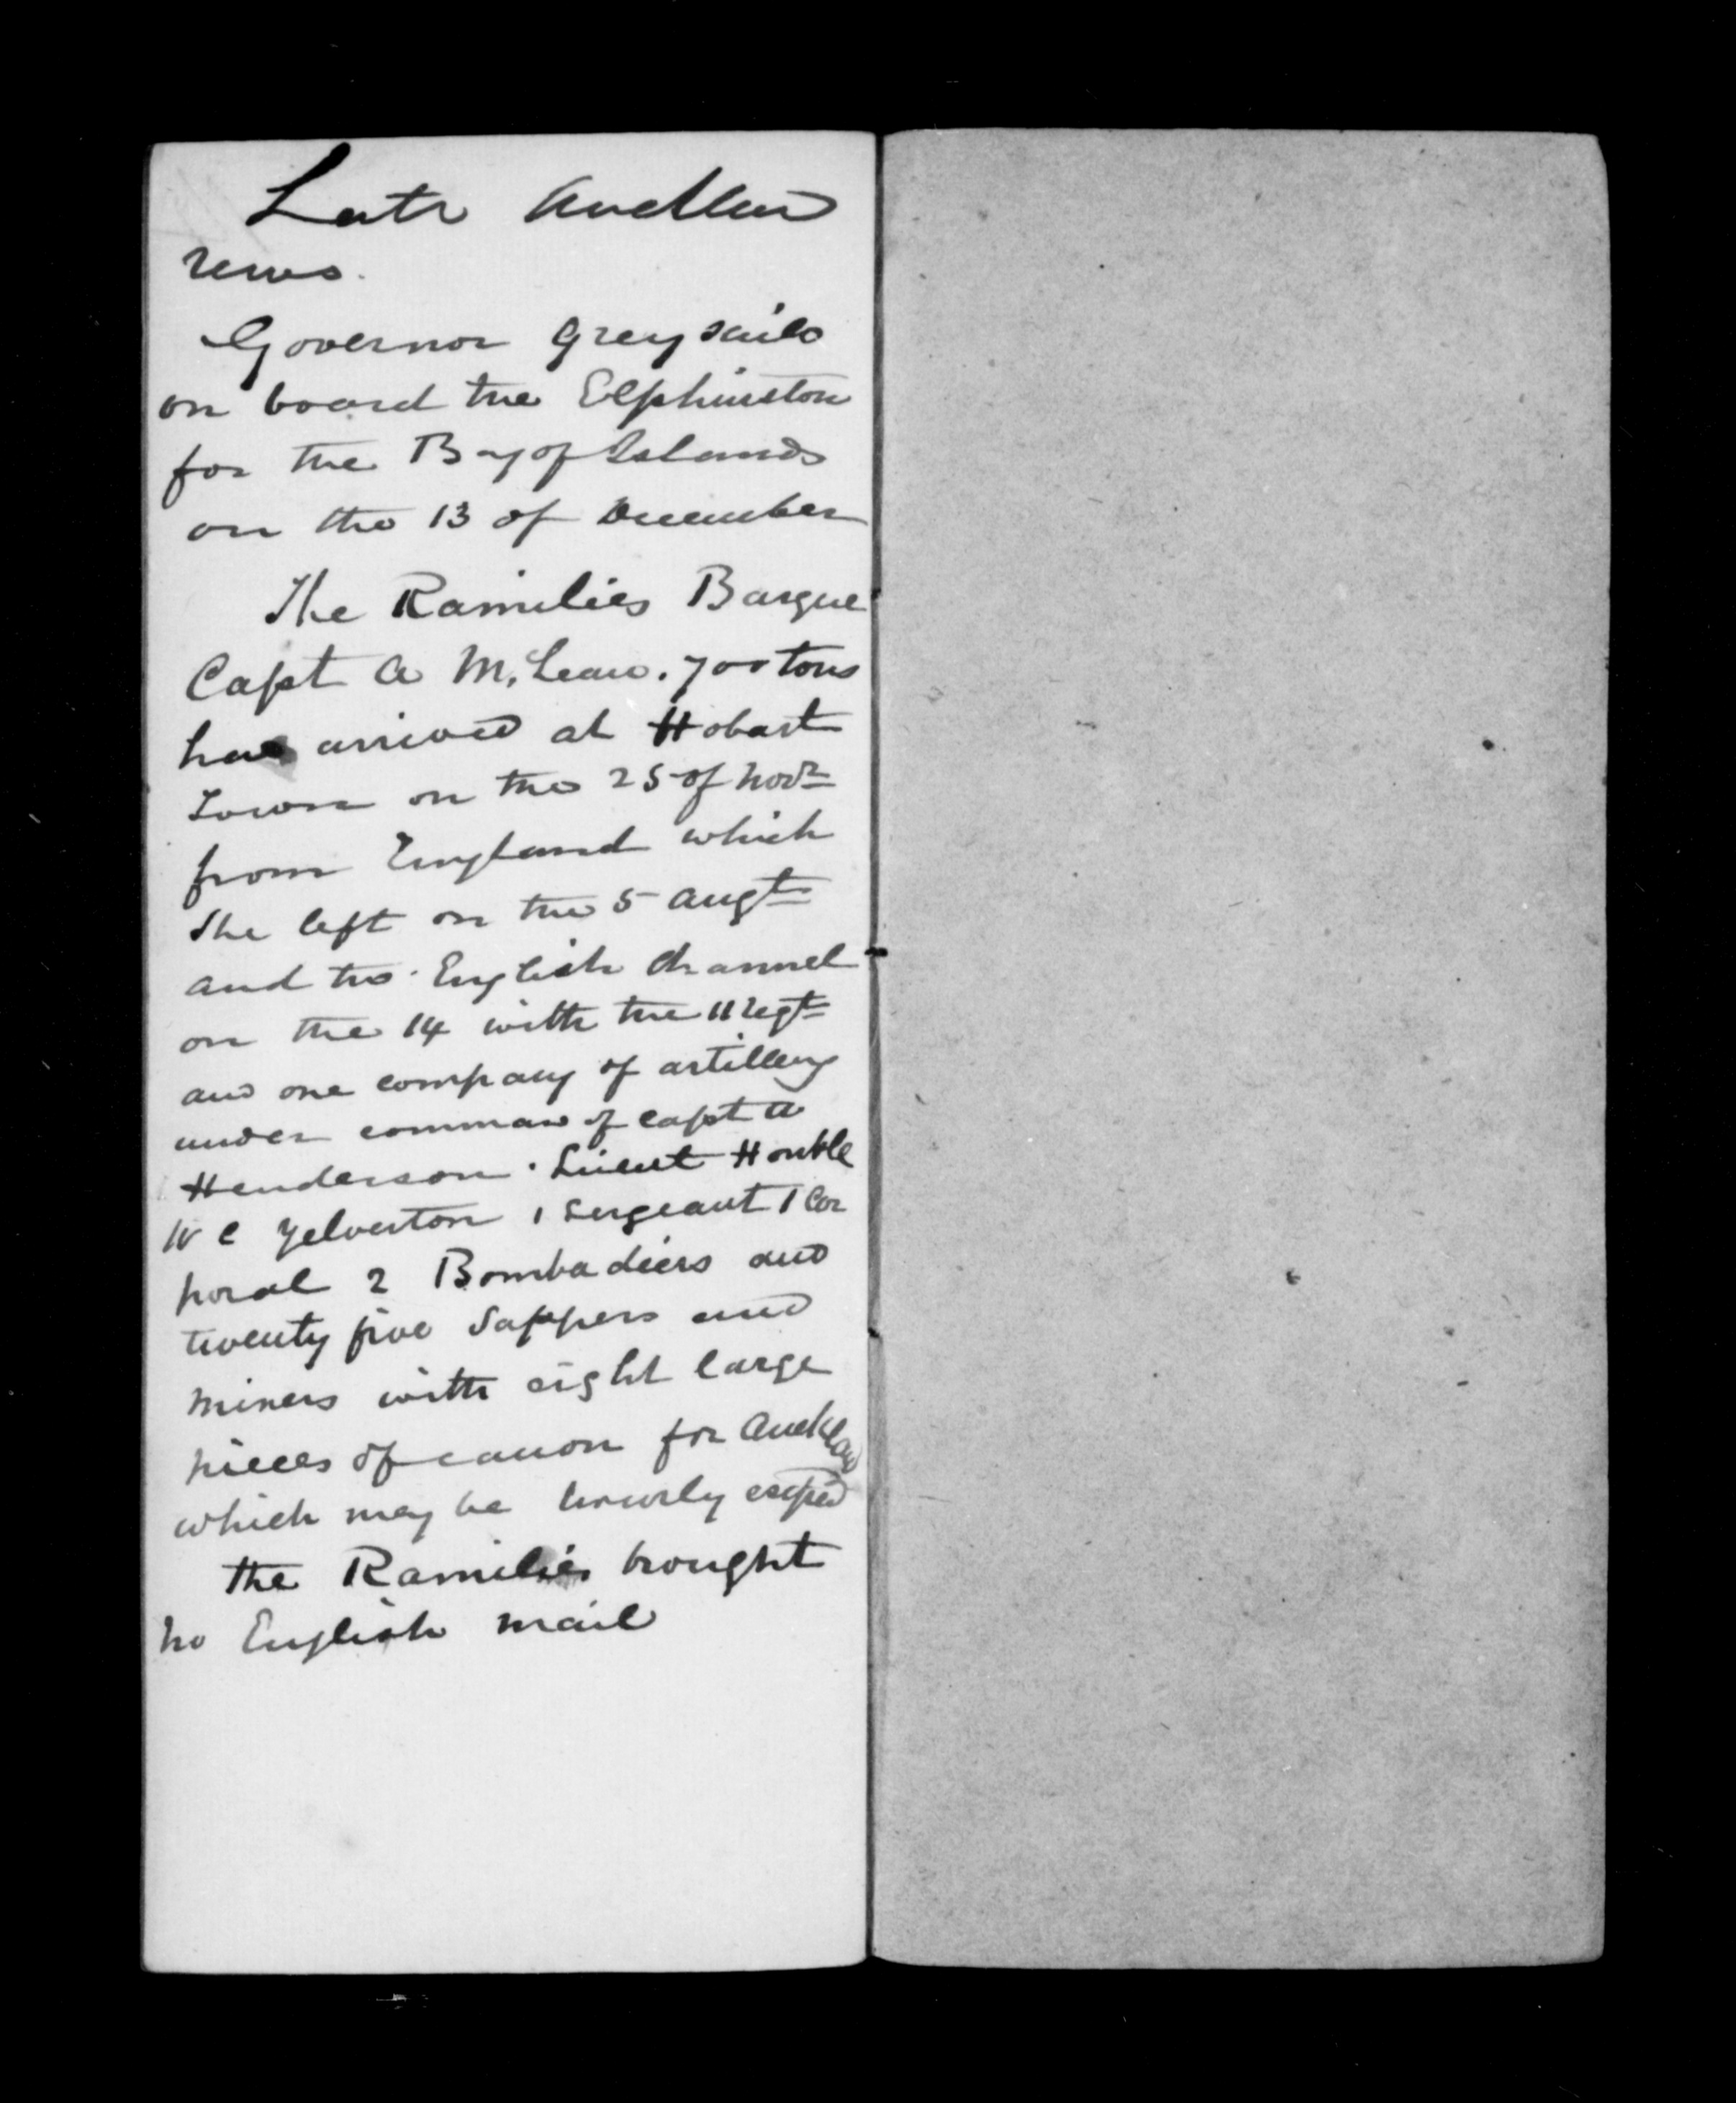 Late Auckland
news.
Governor Grey sails
on board the Elphinston
for the Bay of Islands
on the 13 of December
The Ramilies Barque
Capt A McLean. 700 tons
has arrived at Hobart
Town on the 25 of Novr
from England which
she left on the 5 Augt
and the English Channel
on the 14 with the 11 Regt
and one company of artillery
under comman of Capt A
Henderson. Lieut Honble
W C Yelverton 1 Sergeant 1 Cor
poral 2 Bombadiers and
twenty five Sappers and
miners with eight large
pieces of canon for Auckland
which may be hourly
the Ramilies brought
no English mail